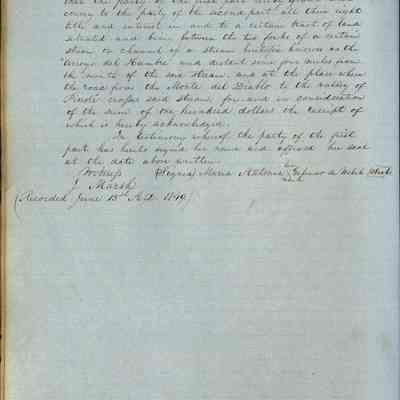 that the party of the first part
convey to the party of the second part all their right
title and interest in and to a certain tract of land
situated and being between the two forks of a certain
stream or channel of a stream heretofore known as the
"Arroyo del Hambre" and distant some four miles from
the mouth of the said stream, and at the place where
the road from the Monte del Diablo to the valley of
Pinole crosses said stream, for and in consideration
of the sum of one hundred dollars the receipt of
which is hereby acknowledged.
In testimony whereof the party of the first
part has hereto signed her name and affixed her seal
at the date above written.
Witness (Signed) Maria Antonia her
J. Marsh mark de Welch (Seal)
(Recorded June 13th A.D. 1849)